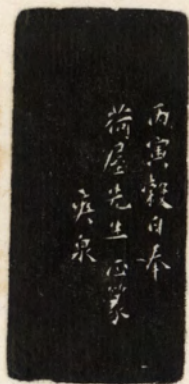 丙寅穀日奉
荷屋先生正篆
疾泉